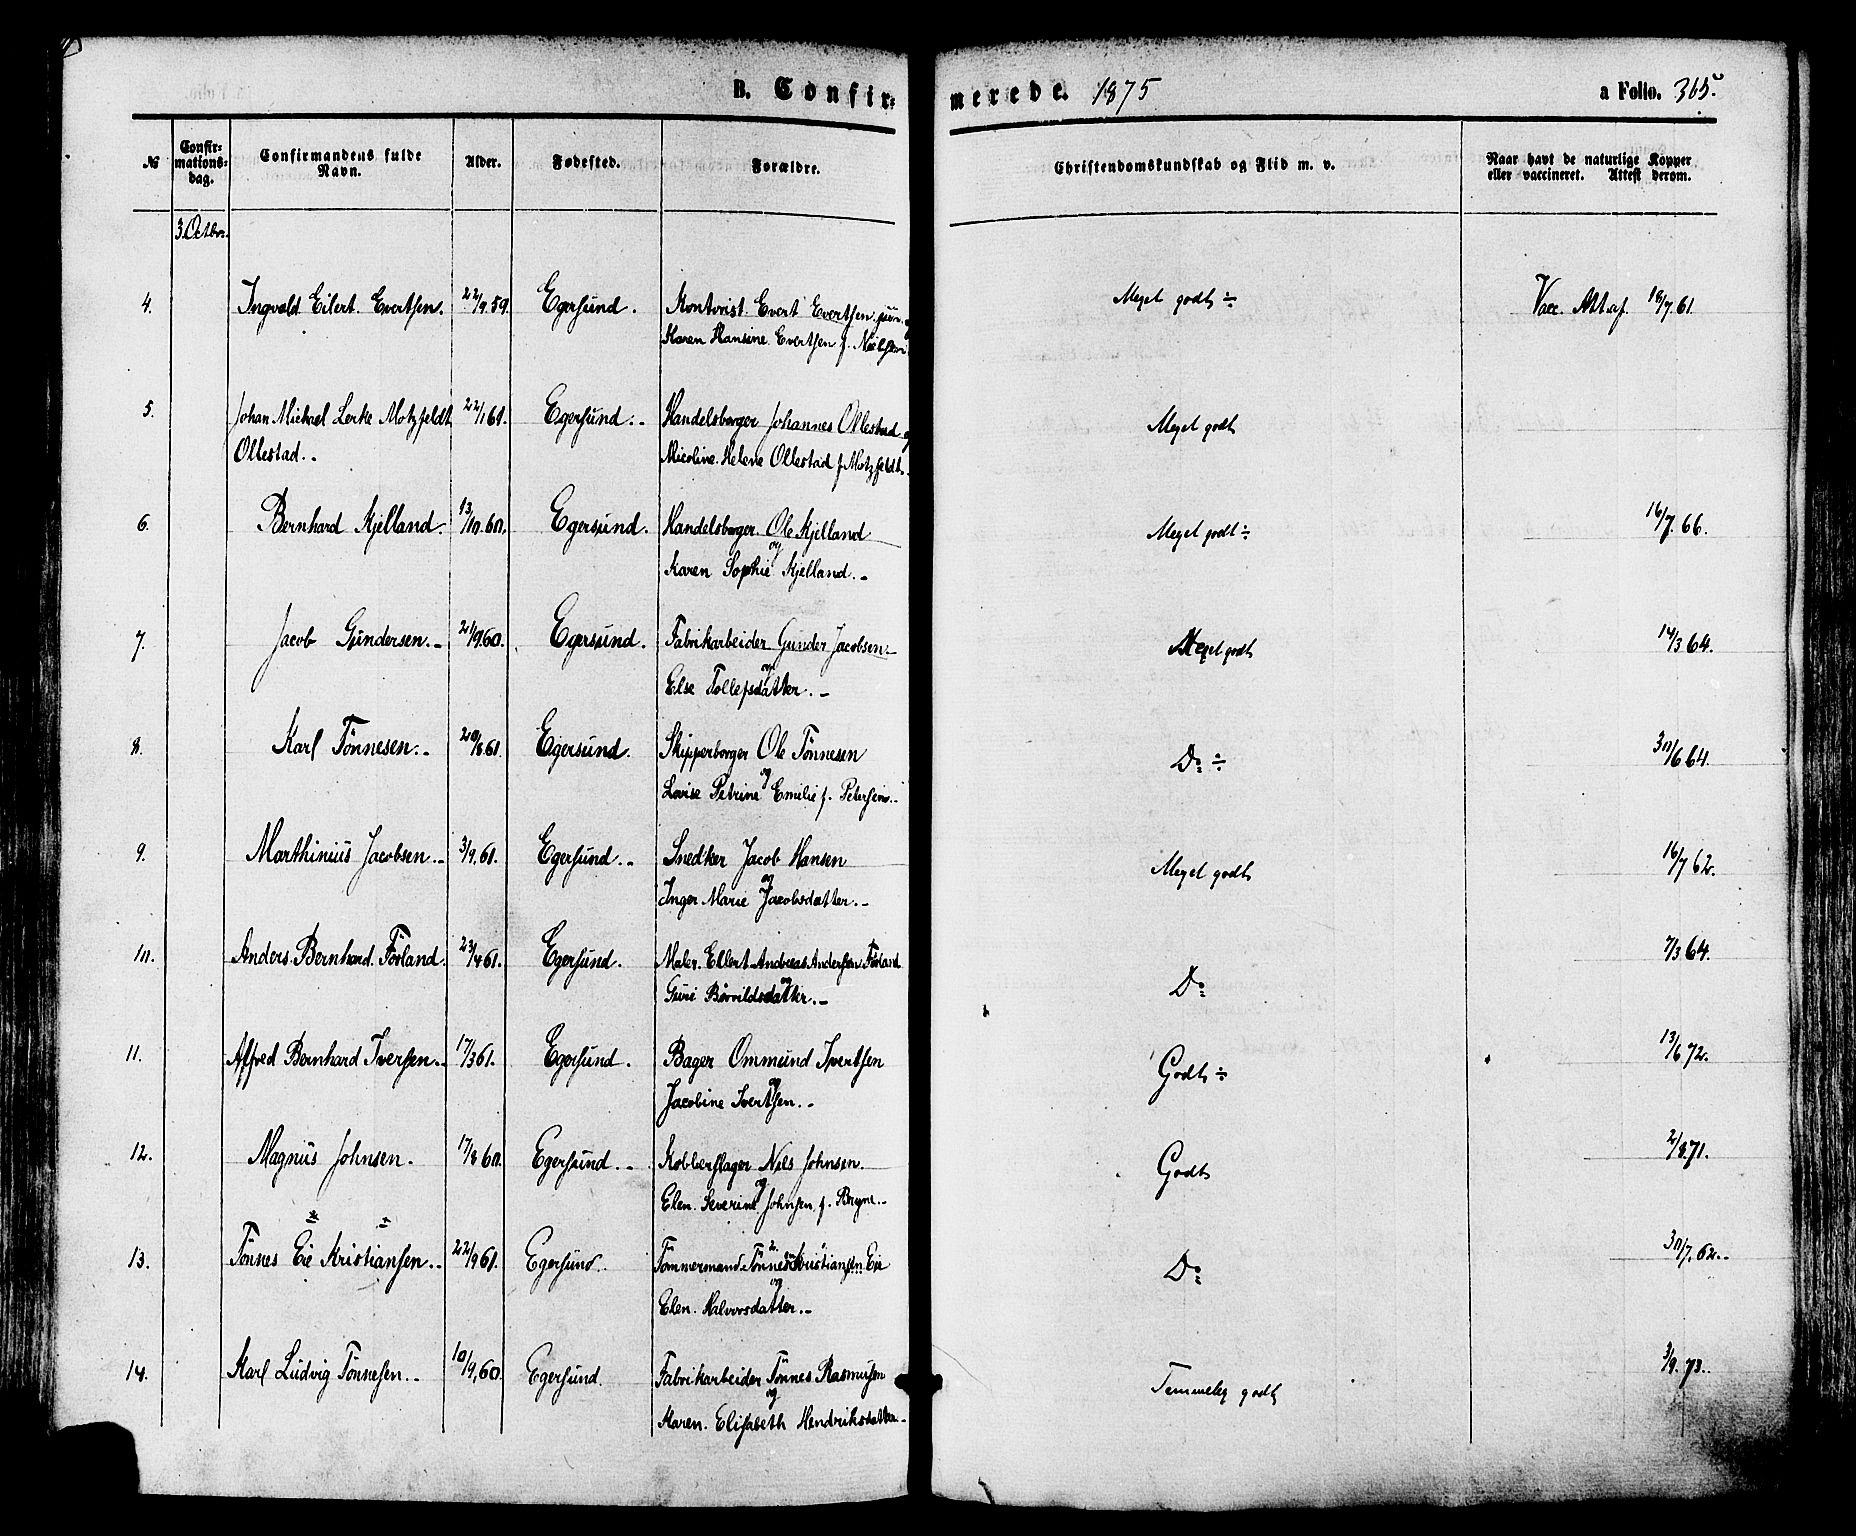 B. Confirmerede. 1875
a Folio. 365.
№ Confirmationsdag. Confirmandens fulde Navn. Alder. Fødested. Forældre. Christendomskundskab og Flid m. v. Naar havt de naturlige Kopper eller vaccineret. Attest derom.
3. Octbr.
4. Ingvald Eilert Evertsen. 22/9 59. Egersund. Kontorist. Evert Evertsen jun. og Meget godt ÷ Vacc. Att. af. 18/7.61.
Karen Hansine Evertsen f. Nielsen
5. Johan Michael Lerke Motzfeldt 22/1 61. Egersund. Handelsborger Johannes Ollestad og Meget godt
Ollestad. Nicoline Helene Ollestad f. Motzfeldt.
6. Bernhard Kjelland. 13/10.60. Egersund. Handelsborger Ole Kjelland Meget godt ÷ 16/7.66.
og
Karen Sophie Kjelland.
7. Jacob Gundersen. 21/9 60. Egersund. Fabrikarbeider Gunder Jacobsen Meget godt 14/3 64.
og
Else Tollefsdatter.
8. Karl Tönnesen. 20/8 61. Egersund. Skipperborger Ole Tönnesen Do ÷ 30/6 64.
og
Lovise Petrine Emilie f. Petersen.
9. Marthinius Jacobsen. 3/9.61. Egersund. Snedker Jacob Hansen Meget godt 16/7 62.
og
Inger Marie Jacobsdatter.
10. Anders Bernhard Förland. 23/4 61. Egersund. Maler. Ellert Andreas Andersen Förland Do 7/3 64.
og
Guri Börvildsdatter.
11. Alfred Bernhard Iversen. 17/3 61. Egersund. Bager Ommund Ivertsen Godt ÷ 13/6 72.
og
Jacobine Ivertsen.
12. Magnus Johnsen. 17/8 60. Egersund. Kobberslager Nils Johnsen. Godt 2/8.71.
og
Elen Severine Johnsen f. Bryne.
13. Tönnes Eie Kristiansen. 22/9 61. Egersund. Tömmermand Tönnes Kristiansen Eie Do 30/7.62.
og
Elen Halvorsdatter.
14. Karl Ludvig Tönnesen. 10/9,60. Egersund. Fabrikarbeider Tönnes Rasmusen Temmelig godt 3/9.73.
og
Karen Elisabeth Hendriksdatter